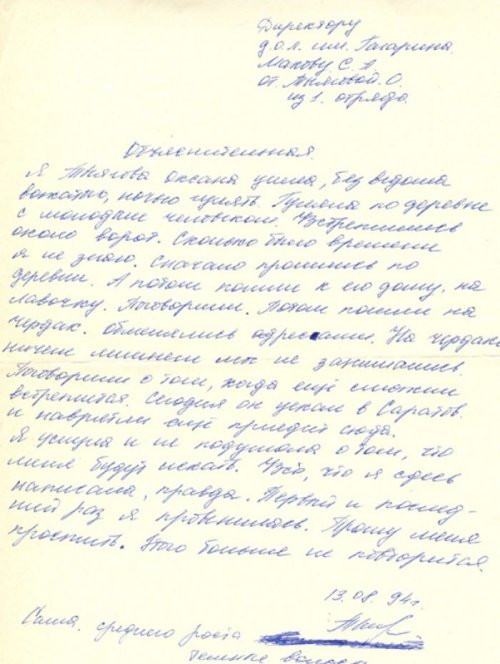 Директору
д.о.л. им. Гагарина
Макову С. А
от Тнясовой О.
из 1. отряда.
Объяснительная
Я Тнясова Оксана ушла, без ведома
вожатых, ночью гулять. Гуляла по деревне
с молодым человеком. Встретились
около ворот. Сколько было времени
я не знаю. Сначало прошлись по
деревни. А потом пошли к его дому, на
лавочку. Поговорили. Потом пошли на
чердак. обменялись адресами. На чердаке
ничем лишнем мы не занимались.
Поговорили о том, когда ещё сможем
встретится. Сегодня он уехал в Саратов.
и наврятли ещё приедит сюда.
Я ушла и не подумала о том, что
меня будут искать. Всё, что я здесь
написала, правда. Первый и послед-
ний раз я провенилась. Прошу меня
простить. Этого больше не повторится.
13.08.94г.
Саша. среднего роста
темные волосы